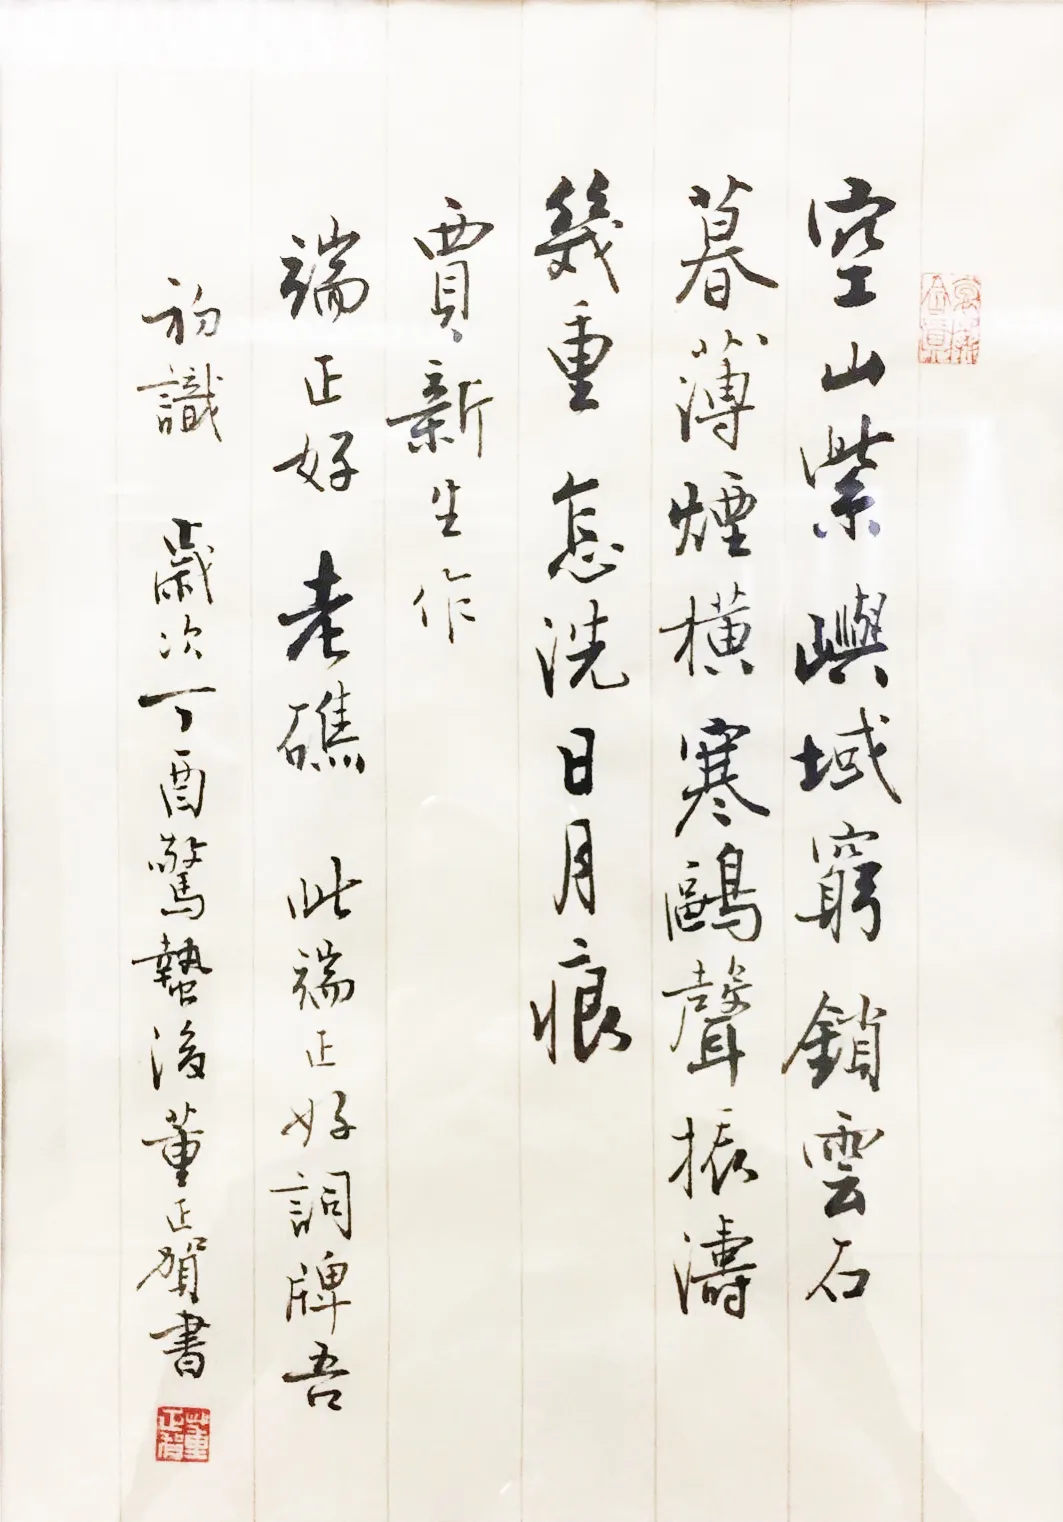 空山紫嶼域窮鎖雲石
暮薄煙橫寒鷗聲振濤
幾重怎洗日月痕
賈新生作
端正好 老礁 此端正好詞牌吾
初識 歲次丁酉驚蟄後董正賀書
董正賀